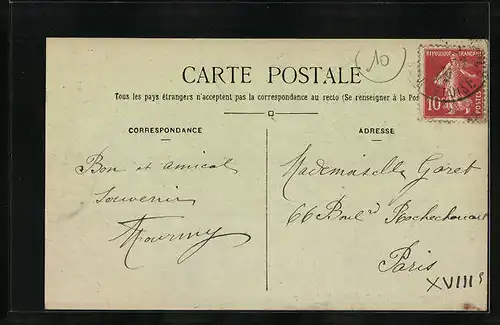 10
CARTE POSTALE
Tous les pays étrangers n'acceptent pas la correspondance au recto (Se renseigner à la Pos
RÉPUBLIQUE FRANÇAISE
10
POSTES
CORRESPONDANCE
ADRESSE
Bon et amical
souvenir
Mademoiselle Goret
66 Boul.d Rochechouart
Paris
XVIII e